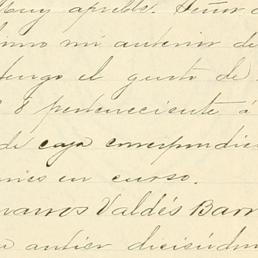 Muy apreble. Señor
mi anterior de
tengo el gusto de
8 perteneciente á
de caja correspondie
en curso.
Navarros Valdés Barr
antier diciéndom